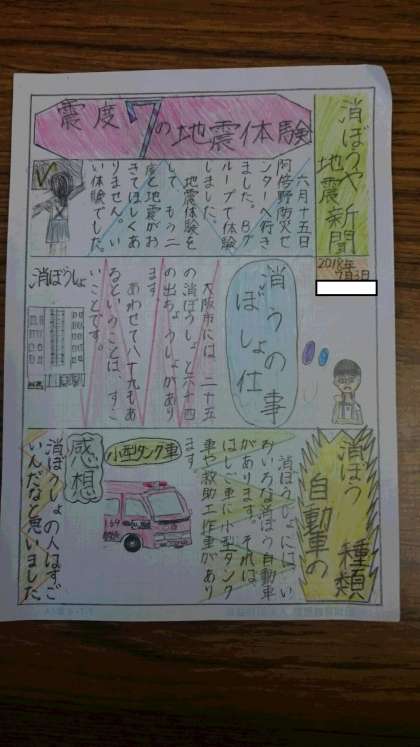 消ぼうや
地震新聞
2018年
7月3日
震度7の地震体験
六月十五日
阿倍野防災セ
ンターへ行き
ました。8グ
ループで体験
しました。
地震体験を
して、もう二
度と地震がお
きてほしくあ
りません。い
い体験でした。
消ぼうしょ
の仕事
大阪市には、二十五
の消ぼうしょと六十四
の出ちょうしょがあり
ます。
あわせて八十九もあ
るということは、すご
いことです。
消ぼうしょ
消ぼう
自動車の
種類
消ぼうしょにはい
ろいろな消ぼう自動車
があります。それは、
はしご車に小型タンク
車や救助工作車があり
ます。
小型タンク車
119
感想
消ぼうしょの人はすご
いんだなと思いました